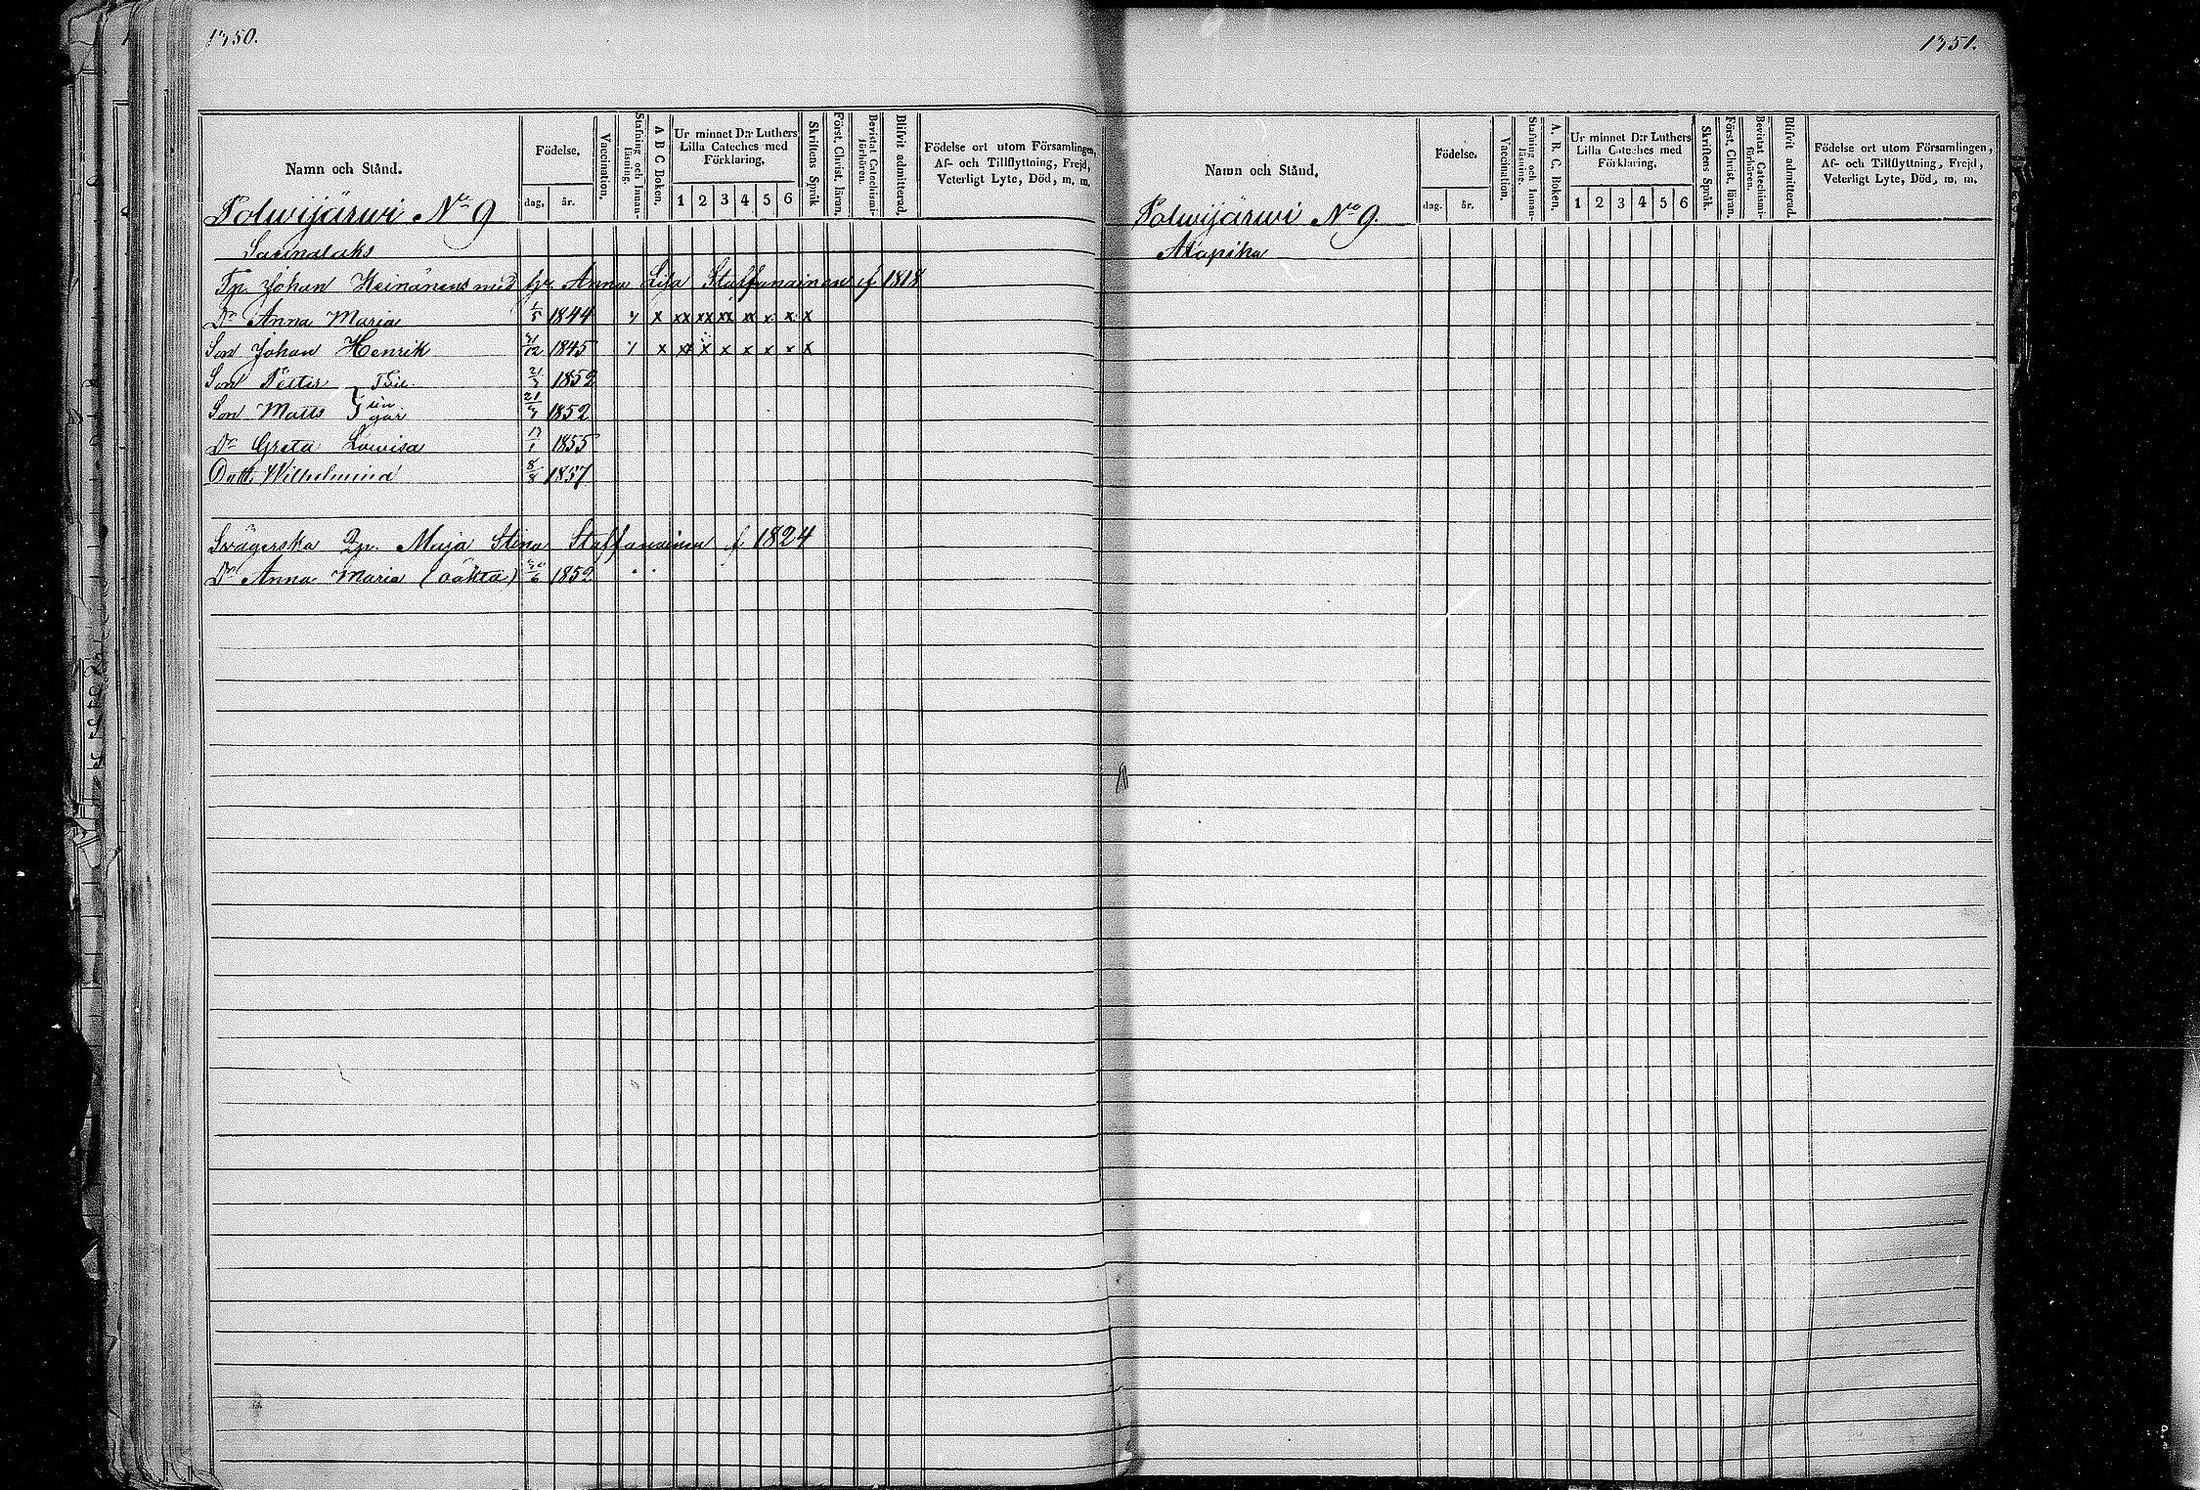 1350.
Namn och Stånd.
Födelse,
dag,
år.
Vaccination,
Stafning och Innan-läsning.
A B C Boken,
Ur minnet D:r Luthers Lilla Cateches med Förklaring,
1 2 3 4 5 6
Skriftens Språk
Först. Christ. läran,
Bevistat Catechismi-förhören.
Blifvit admitterad.
Födelse ort utom Församlingen, Af- och Tillflyttning, Frejd, Veterligt Lyte, Död, m. m.
Polwijärwi No 9
Saunalaks
Tp. Johan Heinänens med hr Anna Lisa Staffanainen f 1818
Dr Anna Maria 1/5 1844 x xx xx xx x x x x
Son Johan Henrik 1845 x x x x x x x x
Son Petter 21/7 1852
Son Matts 21/7 1852
Dr Greta Lowisa 17/1 1855
Dott. Wilhelmina 8/8 1857
Swägerska Maja Stina Staffanainen f 1824
Dr Anna Maria (oäkta) 1852
1351.
Namn och Stånd.
Födelse,
dag.
år.
Vaccination,
Stafning och Innan-läsning.
A. B. C. Boken,
Ur minnet D:r Luthers Lilla Cateches med Förklaring,
1 2 3 4 5 6
Skriftens Språk.
Först, Christ. läran,
Bevistat Catechismi-förhören.
Blifvit admitterad.
Födelse ort utom Församlingen, Af- och Tillflyttning, Frejd, Veterligt Lyte, Död, m. m.
Polwijärwi No 9.